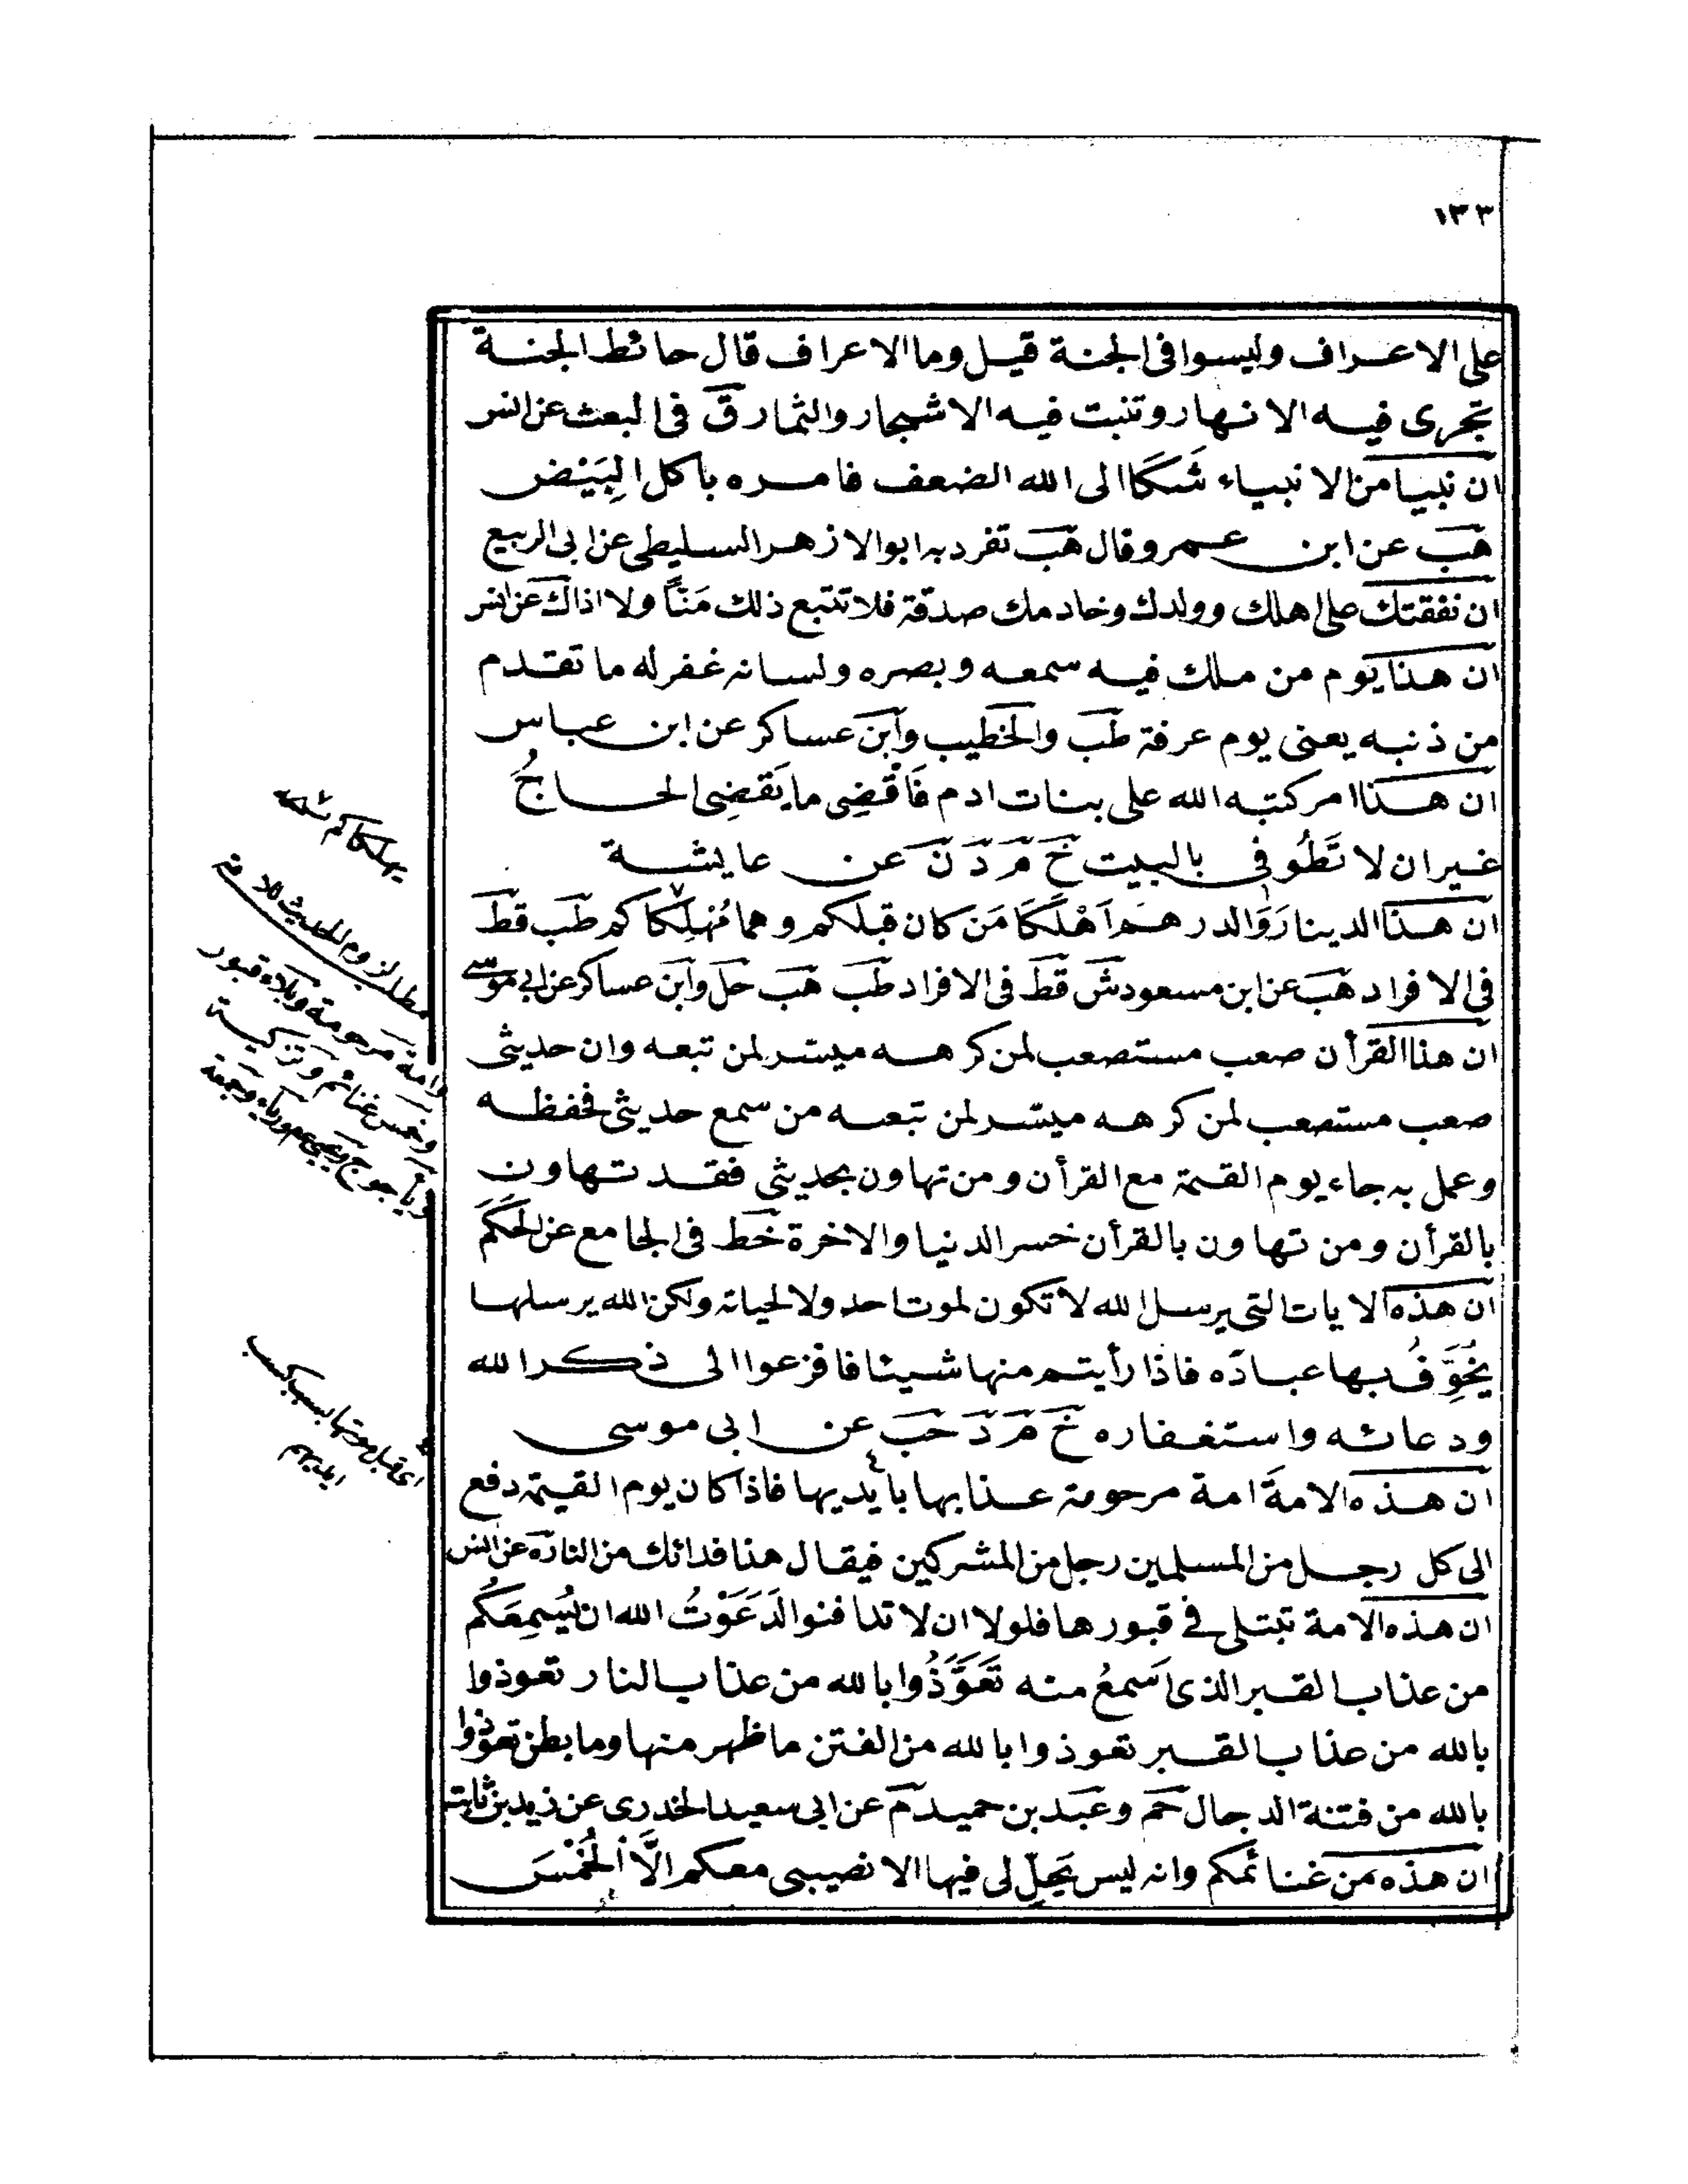 ١٣٣
على الاعراف وليسوا فى الجنة قيل وما الاعراف قال حائط الجنة
تجرى فيه الانهار وتنبت فيه الاشجار والثمار ق فى البعث عن انس
ان نبيا من الانبياء شَكَا الى الله الضعف فامره باكل البَيْض
هب عن ابن عمرو قال هب تفرد به ابو الازهر السليطى عن ابى الربيع
ان نفقتك على اهلك وولدك وخادمك صدقة فلا تتبع ذلك مَنًّا ولا اذا ك عن انس
ان هذا يوم من ملك فيه سمعه وبصره ولسانه غفر له ما تقدم
من ذنبه يعنى يوم عرفة طب والخطيب وابن عساكر عن ابن عباس
ان هذا امر كتبه الله على بنات ادم فَاقْضِى ما يَقضِى الحاجُّ
غير ان لا تَطُوفى بالبيت خ م د ن عن عايشة
ان هذا الدينار وَالدرهم اَهْلَكَا مَن كان قبلكم وهما مُهْلِكَاكم طب قط
فى الافراد هب عن ابن مسعود ش قط فى الافراد طب هب حل وابن عساكر عن ابى موسى
ان هذا القرأن صعب مستصعب لمن كرهه ميسّر لمن تبعه وان حديثى
صعب مستصعب لمن كرهه ميسّر لمن تبعه من سمع حديثى فحفظه
وعمل به جاء يوم القيمة مع القرأن ومن تهاون بحديثى فقد تهاون
بالقرأن ومن تهاون بالقرأن خسر الدنيا والاخرة خط فى الجامع عن الحَكَم
ان هذه الايات التى يرسل الله لا تكون لموت احد ولا لحياته ولكن الله يرسلها
يُخَوِّفُ بها عباده فاذا رأيتم منها شيئا فافزعوا الى ذكر الله
ودعائه واستغفاره خ م د حب عن ابى موسى
ان هذه الامة امة مرحومة عذابها بايديها فاذا كان يوم القيمة دفع
الى كل رجل من المسلمين رجل من المشركين فيقال هذا فدائك من النار ه عن انس
ان هذه الامة تبتلى فى قبورها فلولا ان لا تدافنوا لَدَعَوْتُ الله ان يُسْمِعَكُم
من عذاب القبر الذى اَسمعُ منه تَعَوَّذُوا بالله من عذاب النار تعوذوا
بالله من عذاب القبر تعوذوا بالله من الفتن ما ظهر منها وما بطن تعوذوا
بالله من فتنة الدجال حم وعبد بن حميد م عن ابى سعيد الخدرى عن زيد بن ثابت
ان هذه من غنائمكم وانه ليس يَحِلّ لى فيها الا نصيبى معكم اِلَّا الخُمْسَ
يهلكاكم نسخه
وامة مرحومة وبلاء قبور
وخمس غنائم وتزكية